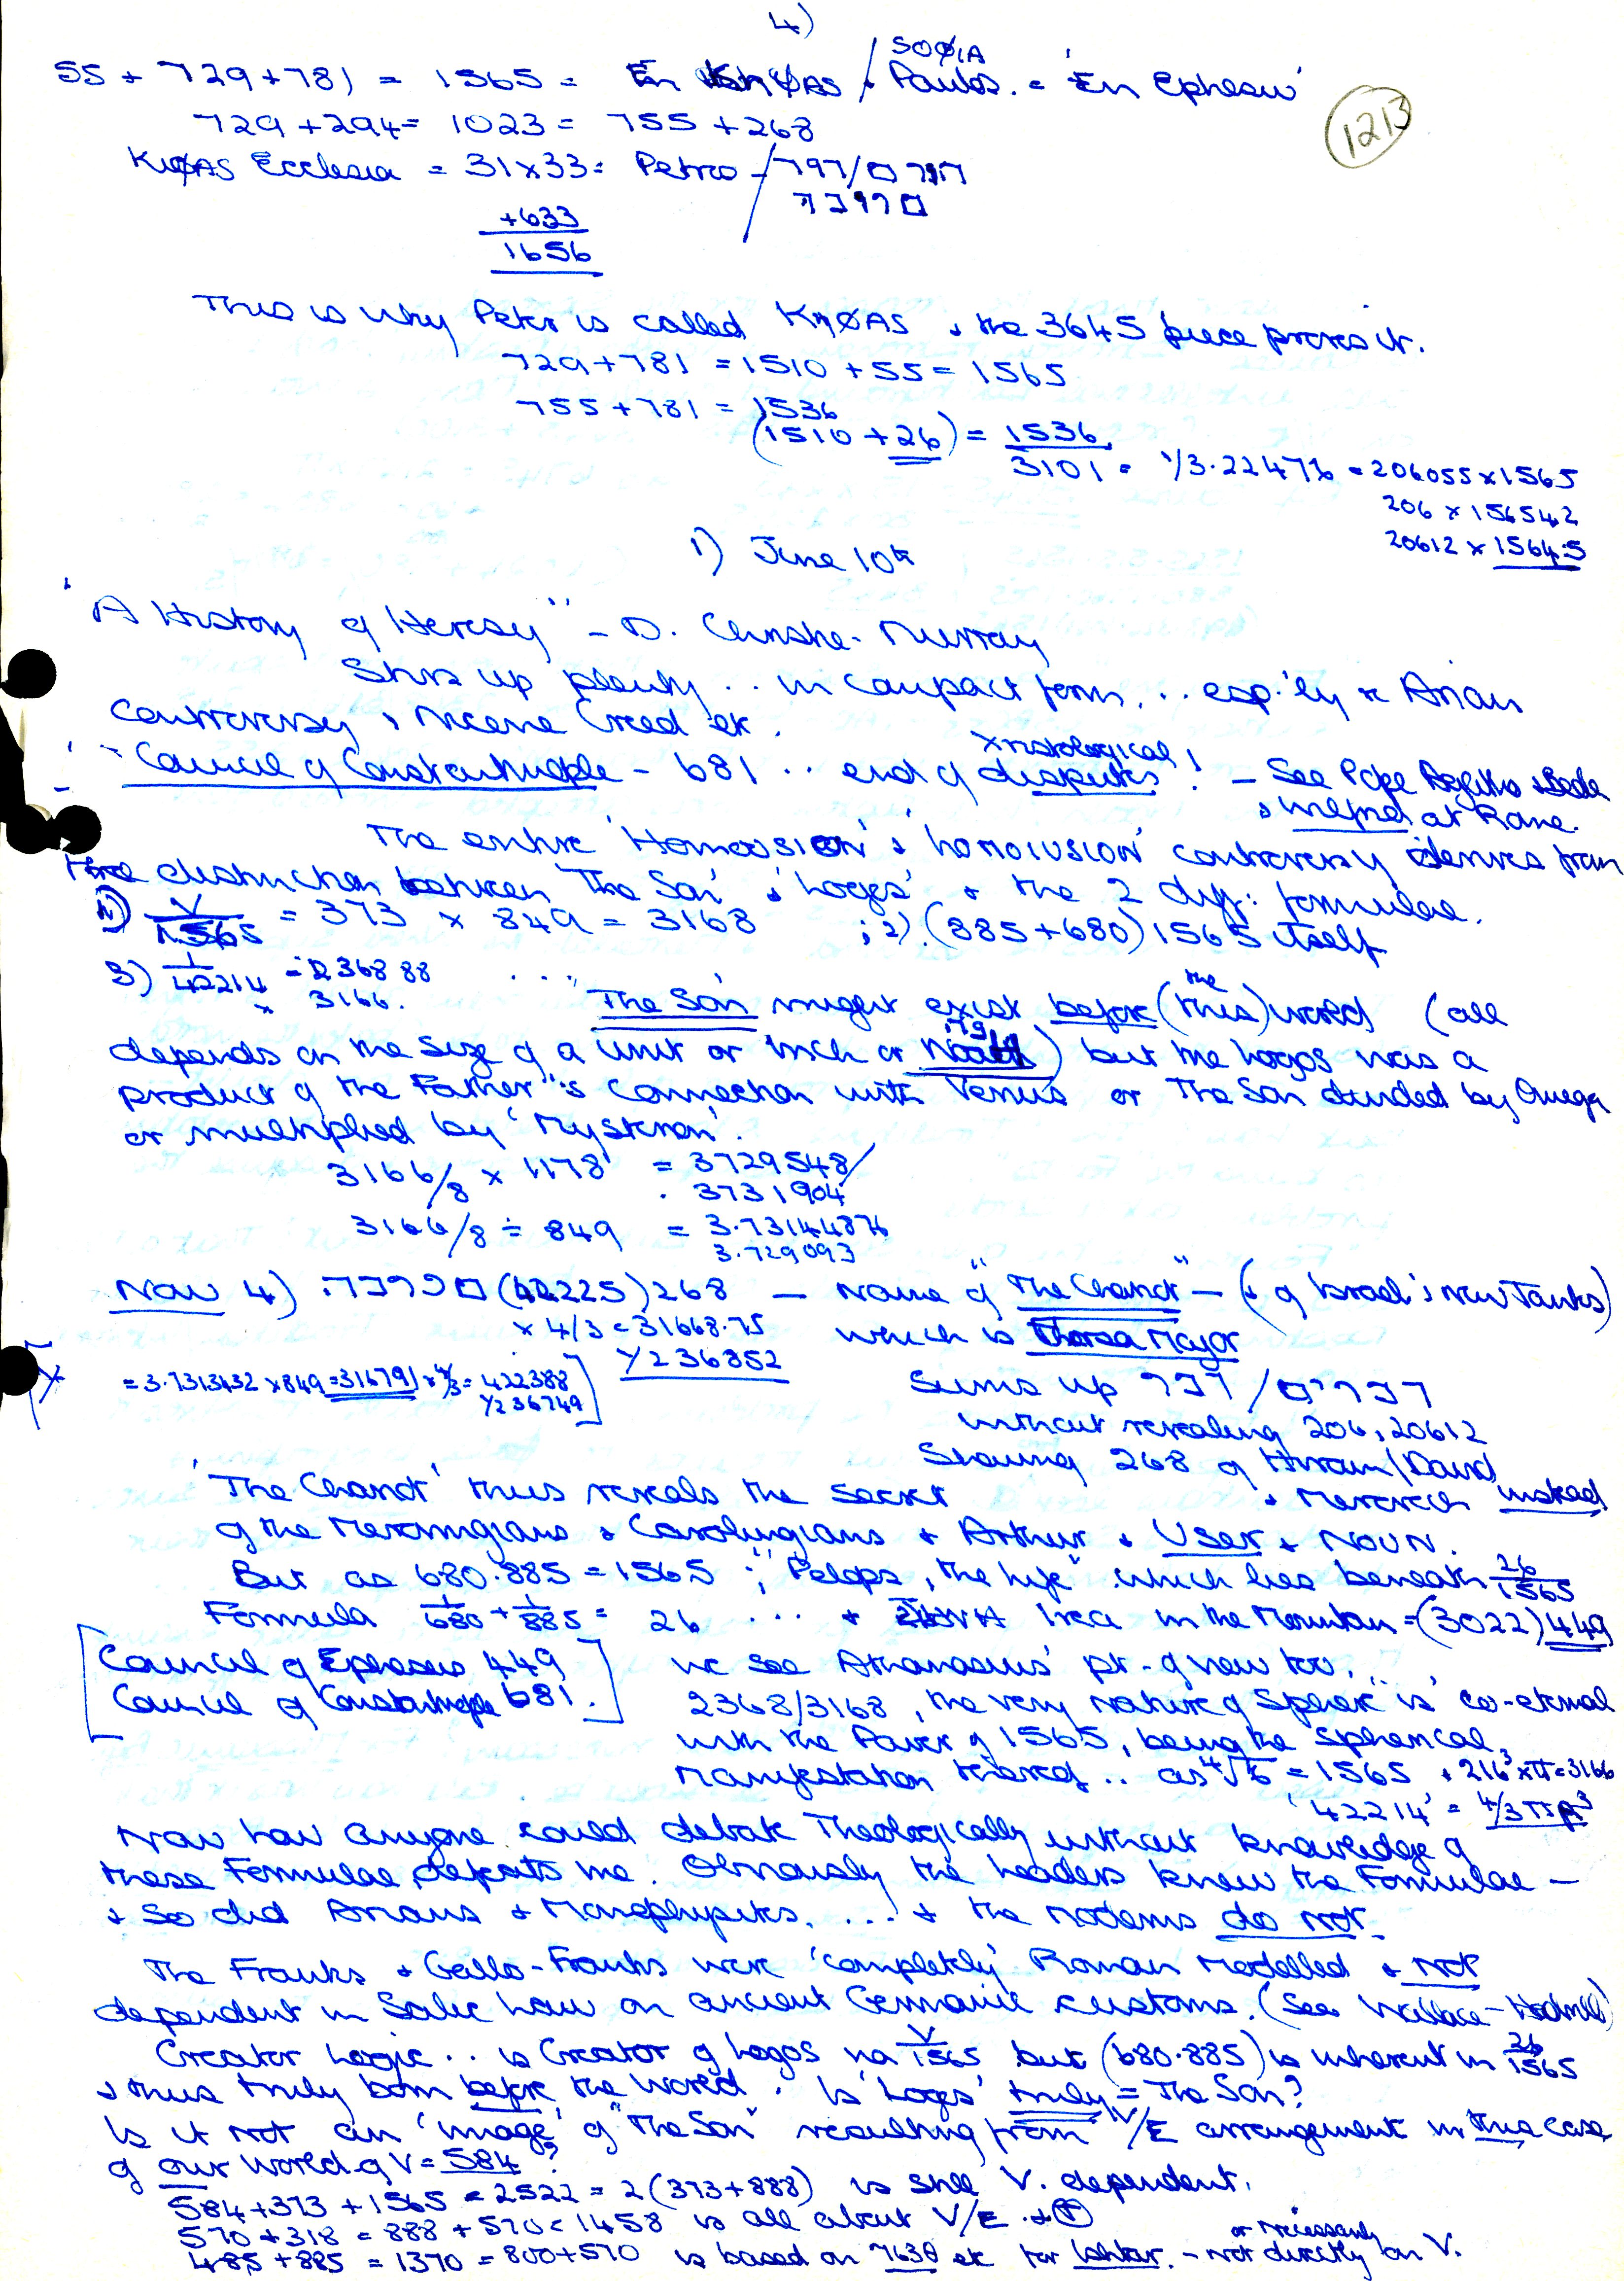 4)
55 + 729 + 781 = 1565 = En KηφAS / + Paulos. = 'En Ephesu'
SOφIA
1213
729 + 294 = 1023 = 755 + 268
KηφAS Ecclesia = 31 x 33 = Petro
+633
1656
This is why Peter is called KηφAS + the 3645 piece proves it.
729 + 781 = 1510 + 55 = 1565
755 + 781 = 1536
(1510 + 26) = 1536
3101 = 1/3.22476 = 206055 x 1565
206 x 156542
20612 x 1564.5
1) June 10th
"A History of Heresy" - D. Christie-Murray
Stirs up plenty .. in compact form .. esp.'ly re Arian
Controversy, Nicene Creed etc.
Council of Constantinople - 681 .. end of Xristological disputes! - See Pope Agatho + Bede
+ Wilfred at Rome.
The entire 'Homoosion' + 'homoiusion' controversy derives from
the distinction between 'The Son' + 'Logos' + the 2 diff: formulae.
V/1565 = 373 x 849 = 3168 ; 2) (885+680) 1565 itself
3) 1/42214 = 236888
x 3166.
... "The Son might exist before (this) the world (all
depends on the size of a unit or inch or ) but the Logos was a
product of the Father"s connection with Venus or The Son divided by Omega
or multiplied by 'Mysterion'.
3166/8 x 1178 = 3729548/
3731904
3166/8 ÷ 849 = 3.73144876
3.729093
Now 4) (42225) 268 - Name of "The Chariot" - (+ of Israel's new Tanks)
x 4/3 = 31668.75 which is Major
1/236852
= 3.7313432 x 849 = 316791 x 4/3 = 422388
1/236749
Sums up דוד /
without revealing 206, 20612
Showing 268 of Hiram/David
+ Merovech instead
'The Chariot' thus reveals the secret
of the Merovingians + Carolingians + Arthur + User + NOUN.
But as 680.885 = 1565 ; "Pelops, the life" which lies beneath 26/1565
Formula 1/680 + 1/885 = 26 ... + in the Mountain = (3022) 449
[Council of Ephesus 449
Council of Constantinople 681.]
we see Athanasius' pt. of view too.
2368/3168, the very nature of Sphere "is" co-eternal
with the Power of 1565, being the spherical
manifestation thereof .. as ⁴√6 = 1565 + 216³ x π = 3166
'42214' = 4/3 π R³
Now how anyone could debate Theologically without knowledge of
these Formulae defeats me. Obviously the leaders knew the Formulae -
+ so did Arians + Monophysites. ... + the moderns do not.
The Franks + Gallo-Franks were 'completely' Roman modelled + NOT
dependent in Salic Law on ancient Germanic customs. (See Wallace-Hadrill)
Creator Logic .. is Creator of Logos via V/1565 but (680.885) is inherent in 26/1565
+ thus truly born before the World. Is 'Logos' truly = The Son?
Is it not an 'image' of "The Son" resulting from V/E arrangement in this case
of our world of V = 584?
584 + 373 + 1565 = 2522 = 2(373+888) is still V. dependent.
570 + 318 = 888 + 570 = 1458 is all about V/E
485 + 885 = 1370 = 800 + 570 is based on 7638 etc for Ishtar. - not directly or necessarily on V.